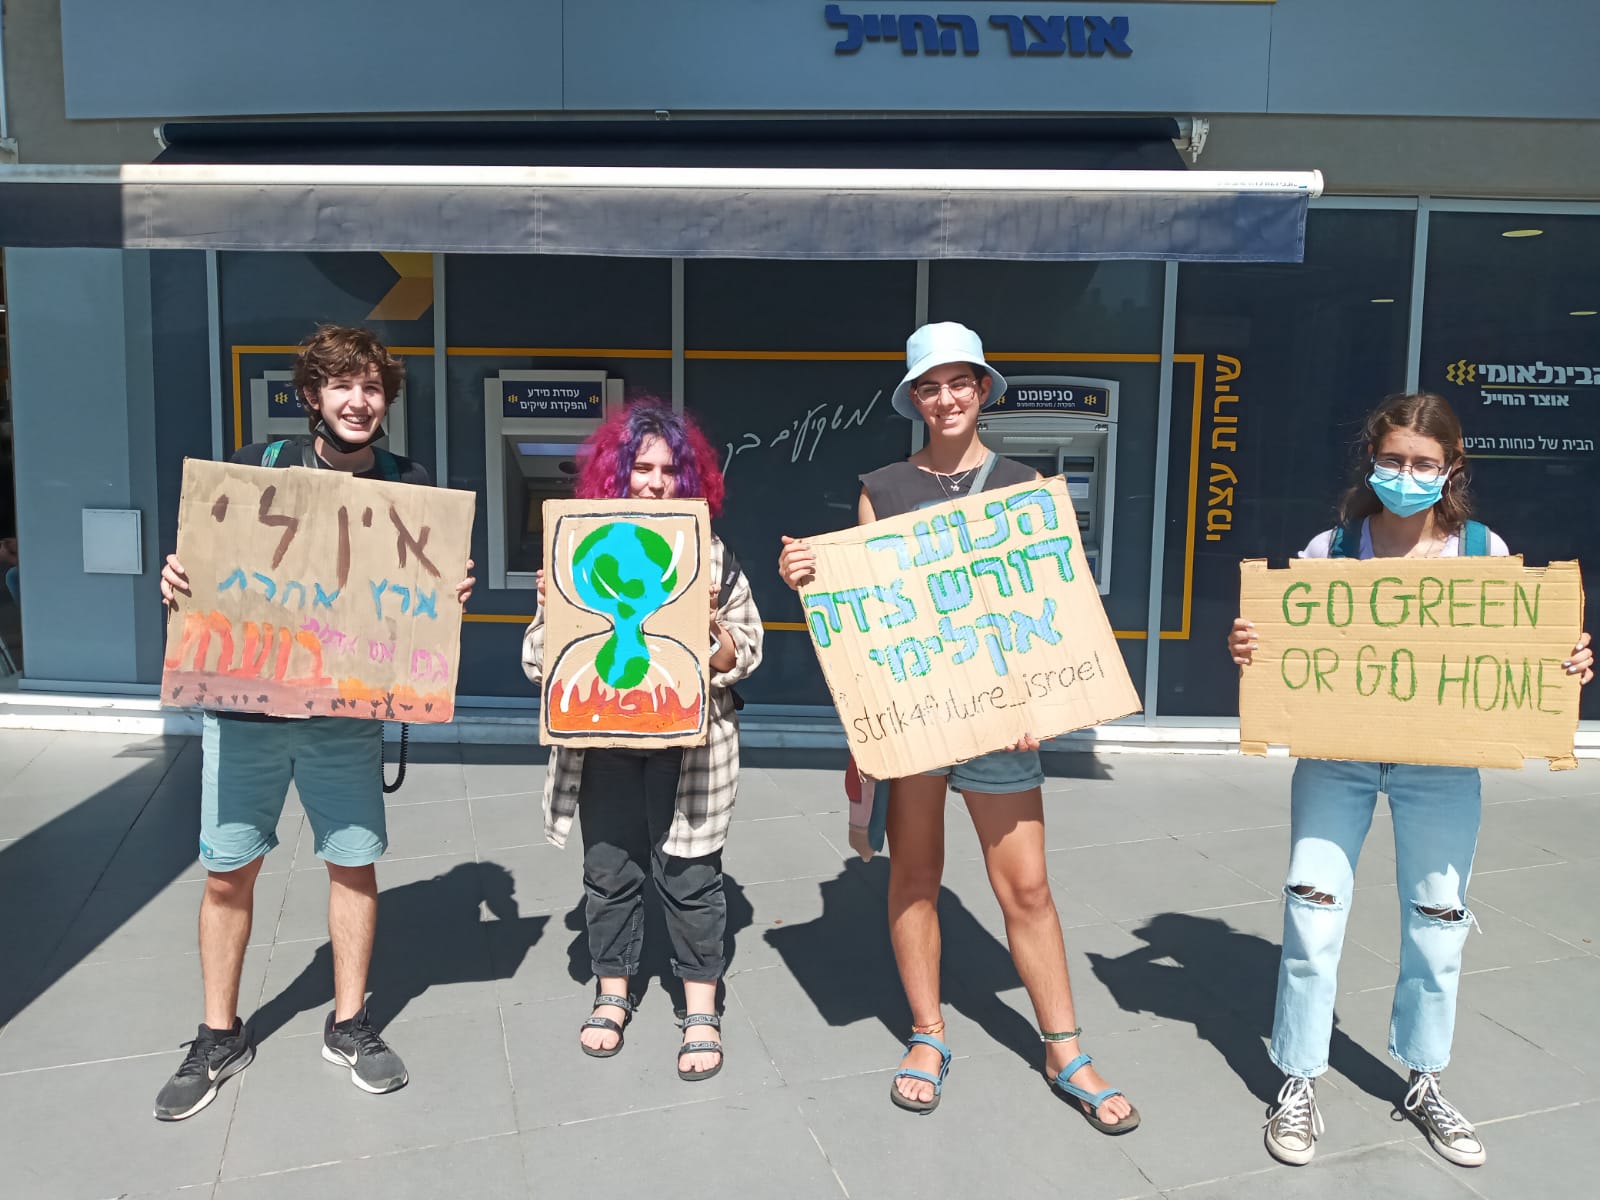 אוצר החייל
עמדת מידע
והפקדת שיקים
סניפומט
משקיעים בק
שירות עצמי
הבינלאומי
אוצר החייל
הבית של כוחות הביט
אין לי
ארץ אחרת
גם אם אדמתי
בוערת
הנוער
דורש צדק
אקלימי
strik4future_israel
GO GREEN
OR GO HOME